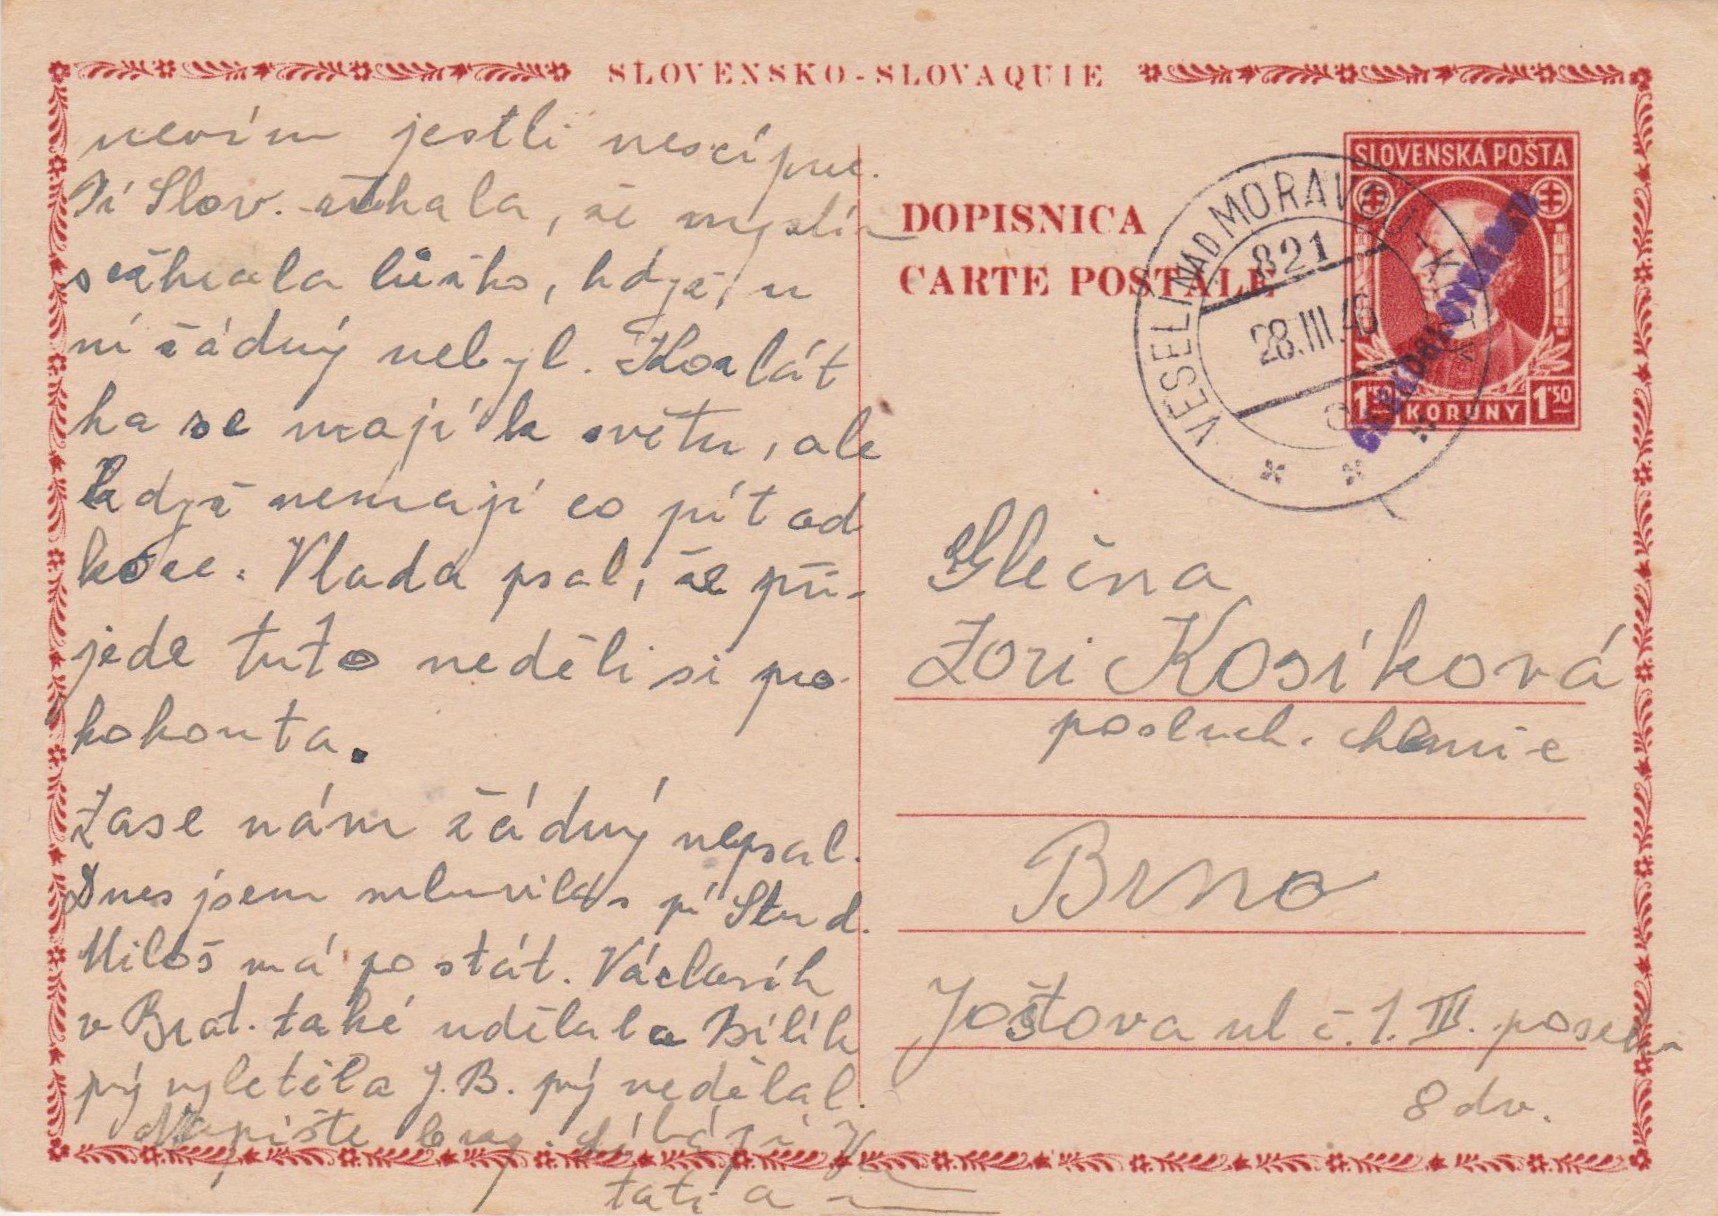 SLOVENSKO-SLOVAQUIE
nevím jestli nescípne.
Pí Slov. říkala, že myslím
stáhvala lůžko, když u
ní žádný nebyl. Košlát
ka se mají k světu, ale
když nemají co pít od
koze. Vlada psal, že při-
jede tuto neděli si pro
kohouta.
Zase nám žádný nepsal.
Dnes jsem mluvila s pí Stud.
Miloš má postát. Václavík
v Brat. také udělal a Bílík
prý vyletěla J.B. prý nedělal.
Napište brzy. Líbají Vás
tati a
DOPISNICA
CARTE POSTALE
SLOVENSKÁ POŠTA
1.50 KORUNY 1.50
ČESKOSLOVENSKO
VESELÍ NAD MORAVOU
821
28.III.46
Slečna
Zori Kosíková
posluch. chemie
Brno
Joštova ul č.1. III. posch
8 dv.